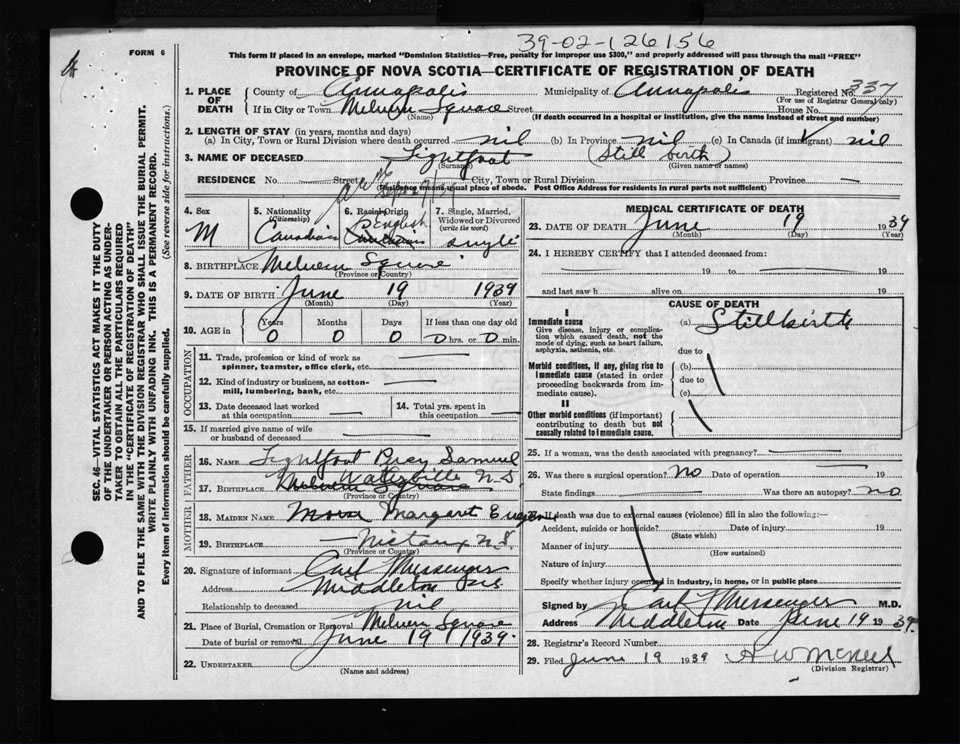 39-02-126156
FORM 6
This form if placed in an envelope, marked "Dominion Statistics—Free, penalty for improper use $300," and properly addressed will pass through the mail "FREE"
PROVINCE OF NOVA SCOTIA—CERTIFICATE OF REGISTRATION OF DEATH
SEC. 46—VITAL STATISTICS ACT MAKES IT THE DUTY
OF THE UNDERTAKER OR PERSON ACTING AS UNDER-
TAKER TO OBTAIN ALL THE PARTICULARS REQUIRED
IN THE "CERTIFICATE OF REGISTRATION OF DEATH"
AND TO FILE THE SAME WITH THE DIVISION REGISTRAR WHO SHALL ISSUE THE BURIAL PERMIT.
WRITE PLAINLY WITH UNFADING INK. THIS IS A PERMANENT RECORD.
Every item of information should be carefully supplied. (See reverse side for instructions.)
1. PLACE OF DEATH County of Annapolis Municipality of Annapolis Registered No. 337
(For use of Registrar General only)
If in City or Town Melvern Square Street House No.
(Name) (If death occurred in a hospital or institution, give the name instead of street and number)
2. LENGTH OF STAY (in years, months and days)
(a) In City, Town or Rural Division where death occurred nil (b) In Province nil (c) In Canada (if immigrant) nil
3. NAME OF DECEASED Lightfoot (Still birth)
(Surname) (Given name or names)
RESIDENCE No. Street City, Town or Rural Division Province —
(Residence means usual place of abode. Post Office Address for residents in rural parts not sufficient)
4. Sex M
5. Nationality (Citizenship) Canadian
6. Racial Origin English Canadian
7. Single, Married, Widowed or Divorced (write the word) single
8. BIRTHPLACE Melvern Square
(Province or Country)
9. DATE OF BIRTH June 19 1939
(Month) (Day) (Year)
10. AGE in Years Months Days If less than one day old
0 0 0 0 hrs. or 0 min.
OCCUPATION
11. Trade, profession or kind of work as spinner, teamster, office clerk, etc.
12. Kind of industry or business, as cotton-mill, lumbering, bank, etc.
13. Date deceased last worked at this occupation
14. Total yrs. spent in this occupation
15. If married give name of wife or husband of deceased
FATHER
16. NAME Lightfoot Percy Samuel
17. BIRTHPLACE Melvern Square Waterville N.S
(Province or Country)
MOTHER
18. MAIDEN NAME Morse Margaret
19. BIRTHPLACE Nictaux N.S.
(Province or Country)
20. Signature of informant Carl Messenger
Address Middleton NS
Relationship to deceased nil
21. Place of Burial, Cremation or Removal Melvern Square
Date of burial or removal June 19 1939.
22. UNDERTAKER
(Name and address)
MEDICAL CERTIFICATE OF DEATH
23. DATE OF DEATH June 19 1939
(Month) (Day) (Year)
24. I HEREBY CERTIFY that I attended deceased from:
19 to 19
and last saw h alive on 19
CAUSE OF DEATH
I
Immediate cause (a) Stillbirth
Give disease, injury or complication which caused death, not the mode of dying, such as heart failure, asphyxia, asthenia, etc.
due to
Morbid conditions, if any, giving rise to immediate cause (stated in order proceeding backwards from immediate cause).
(b)
due to
(c)
II
Other morbid conditions (if important) contributing to death but not causally related to immediate cause.
25. If a woman, was the death associated with pregnancy?
26. Was there a surgical operation? no Date of operation 19
State findings Was there an autopsy? no
27. If death was due to external causes (violence) fill in also the following:—
Accident, suicide or homicide? Date of injury 19
(State which)
Manner of injury
(How sustained)
Nature of injury
Specify whether injury occurred in industry, in home, or in public place
Signed by Carl Messenger M.D.
Address Middleton Date June 19 1939.
28. Registrar's Record Number
29. Filed June 19 1939 A W McNeil
(Division Registrar)